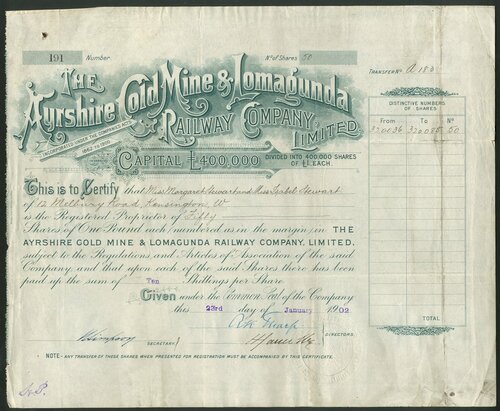 191 Number
No. of Shares 50
TRANSFER No.
THE
Ayrshire Gold Mine & Lomagunda
RAILWAY COMPANY,
LIMITED
INCORPORATED UNDER THE COMPANIES ACTS
1862 TO 1890
CAPITAL £400,000 DIVIDED INTO 400,000 SHARES
OF £1 EACH.
DISTINCTIVE NUMBERS
OF SHARES
From To No.
320036 320085 50
This is to Certify that Miss Margaret Stewart and Miss Isobel Stewart
of 12 Melbury Road, Kensington, W
is the Registered Proprietor of Fifty
Shares of One Pound each (numbered as in the margin) in THE
AYRSHIRE GOLD MINE & LOMAGUNDA RAILWAY COMPANY, LIMITED,
subject to the Regulations, and Articles of Association of the said
Company, and that upon each of the said Shares there has been
paid up the sum of Ten Shillings per Share
Given under the Common Seal of the Company
this 23rd day of January 1902
SECRETARY
DIRECTORS.
TOTAL
NOTE - ANY TRANSFER OF THESE SHARES WHEN PRESENTED FOR REGISTRATION MUST BE ACCOMPANIED BY THIS CERTIFICATE.